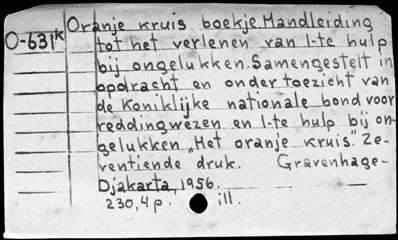 Oranje kruis boekje. Mandleiding
O-631k
tot het verlenen van 1-te hulp
bij ongelukken. Samengesteld in
opdracht en onder toezicht van
de Koniklijke nationale bond voor
reddingwezen en 1-te hulp bij on-
gelukken „Het oranje kruis". Ze-
ventiende druk. Gravenhage-
Djakarta, 1956.
230,4 p. ill.